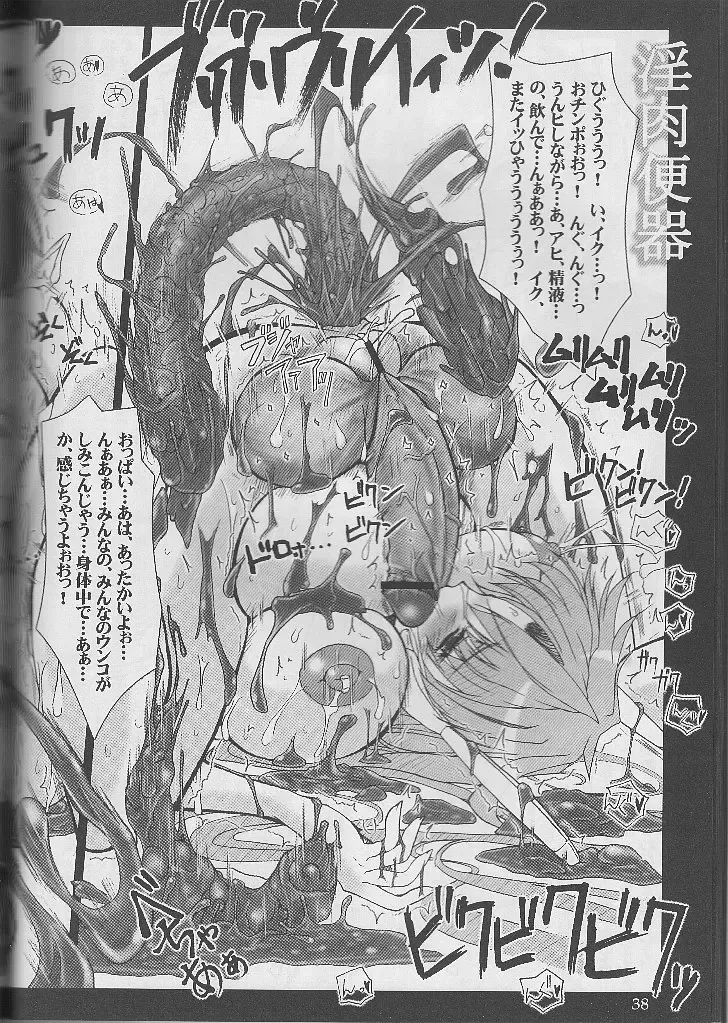 淫肉便器
ひぐううっ！　い、イク…っ！
おチンポぉおっ！　んぐ、んぐ…っ
うんヒしながら…あ、アヒ、精液…
の、飲んで…んぁああっ！　イク、
またイッひゃううぅううぅっ！
あ
あ
あは
ムリムリ
ムリムリ
ムリッ
ビクン！
ビクン！
ビクン
ビクン
ドロォ…
おっぱい…あは、あったかいよぉ…
んぁあぁ…みんなの、みんなのウンコが
しみこんじゃう…身体中で…あぁ…
か、感じちゃうよぉおっ！
ガクガク
ガクッ
べちゃ
あぁぁ
ビクビクビクッ
38